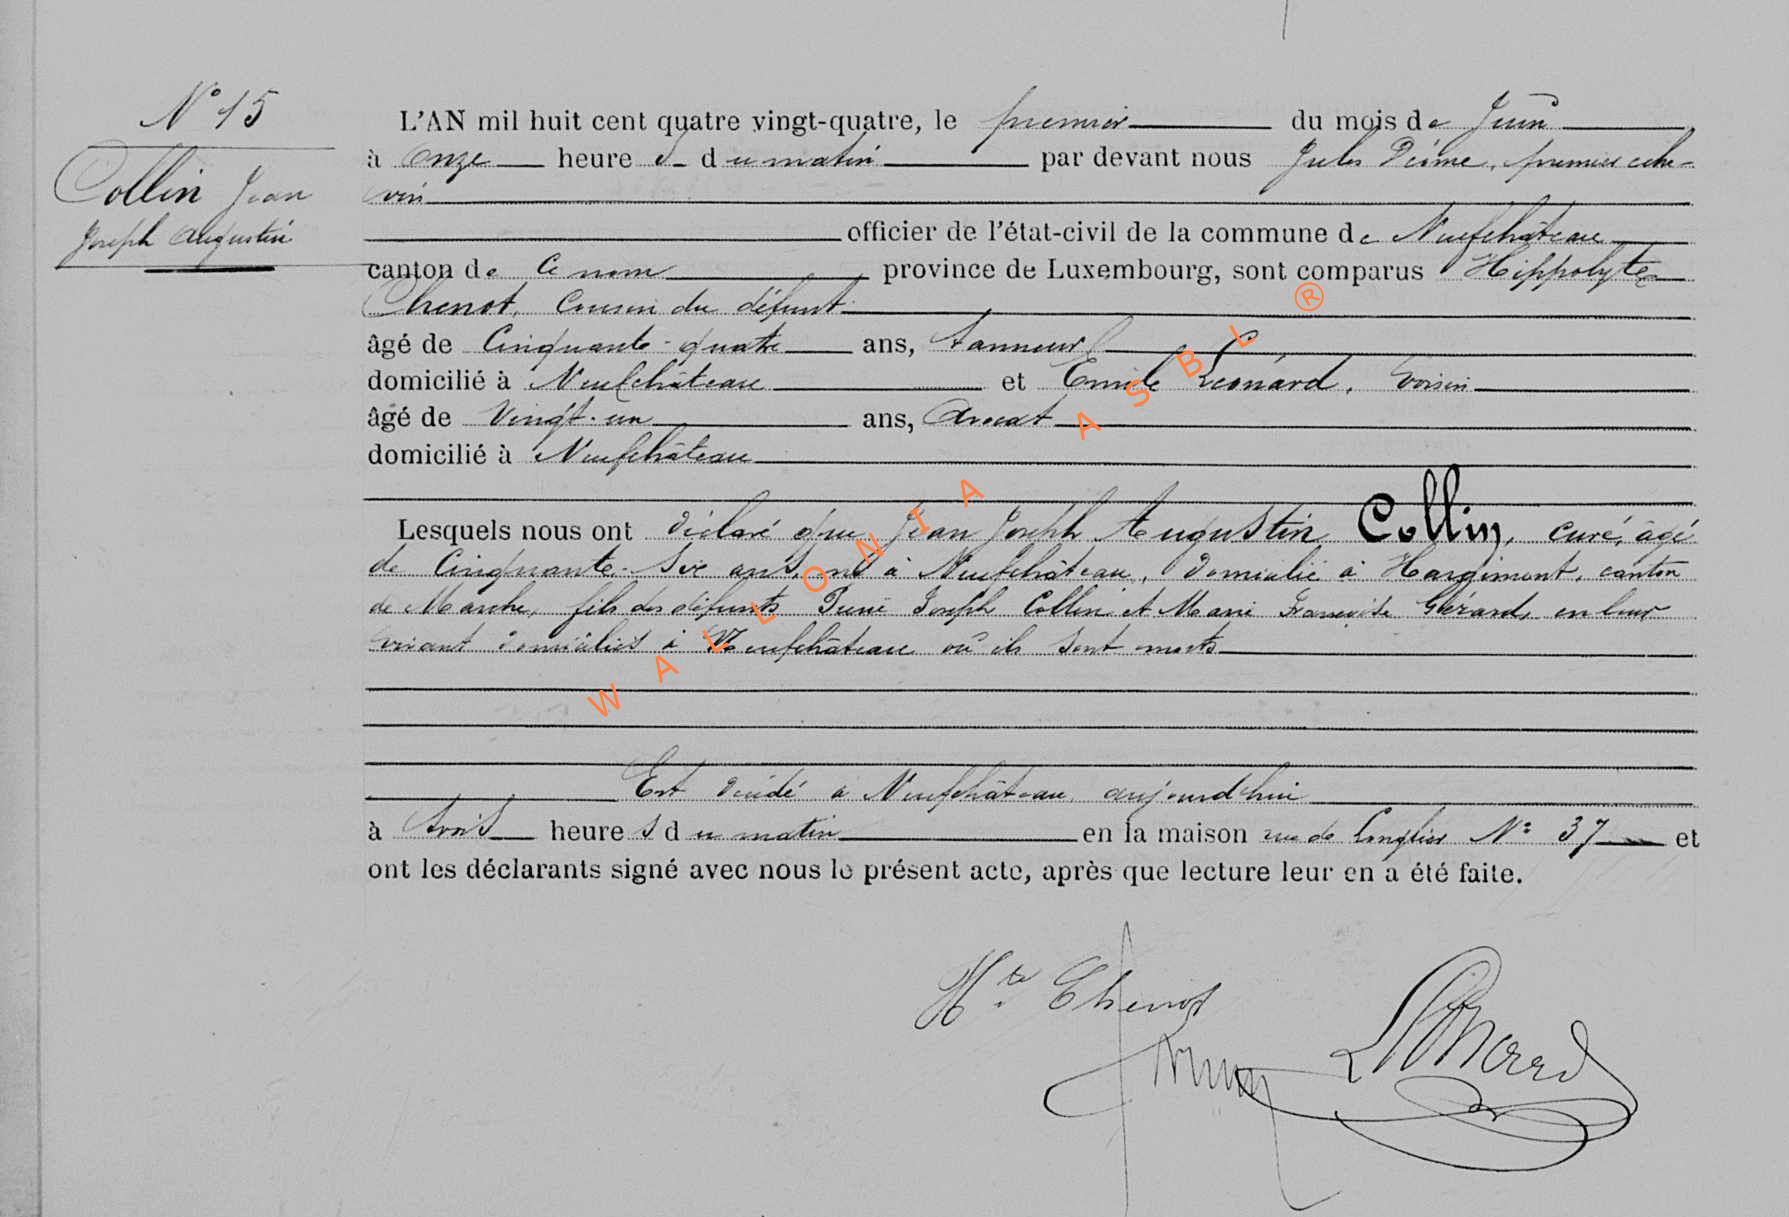 N° 15
Collin Jean
Joseph Augustin
L'AN mil huit cent quatre vingt-quatre, le premier du mois de Juin
à onze heures du matin par devant nous Jules, premier éche-
vin
officier de l'état-civil de la commune de Neufchâteau
canton de ce nom province de Luxembourg, sont comparus Hippolyte
Chenot, Cousin du défunt
âgé de Cinquante-quatre ans, tanneur
domicilié à Neufchâteau et Emile Léonard, Voisin
âgé de Vingt-un ans, Avocat
domicilié à Neufchâteau
Lesquels nous ont déclaré que Jean Joseph Augustin Collin, curé, âgé
de Cinquante-six ans, né à Neufchâteau, domicilié à Hargimont, canton
de Marche, fils des défunts Joseph Collin et Marie Françoise Gérard, en leur
vivant domiciliés à Neufchâteau où ils sont morts
Est décédé à Neufchâteau aujourd'hui
à trois heures du matin en la maison rue de Longlier N° 37 et
ont les déclarants signé avec nous le présent acte, après que lecture leur en a été faite.
Hte Chenot
Léonard
WALLONIA ASBL ®